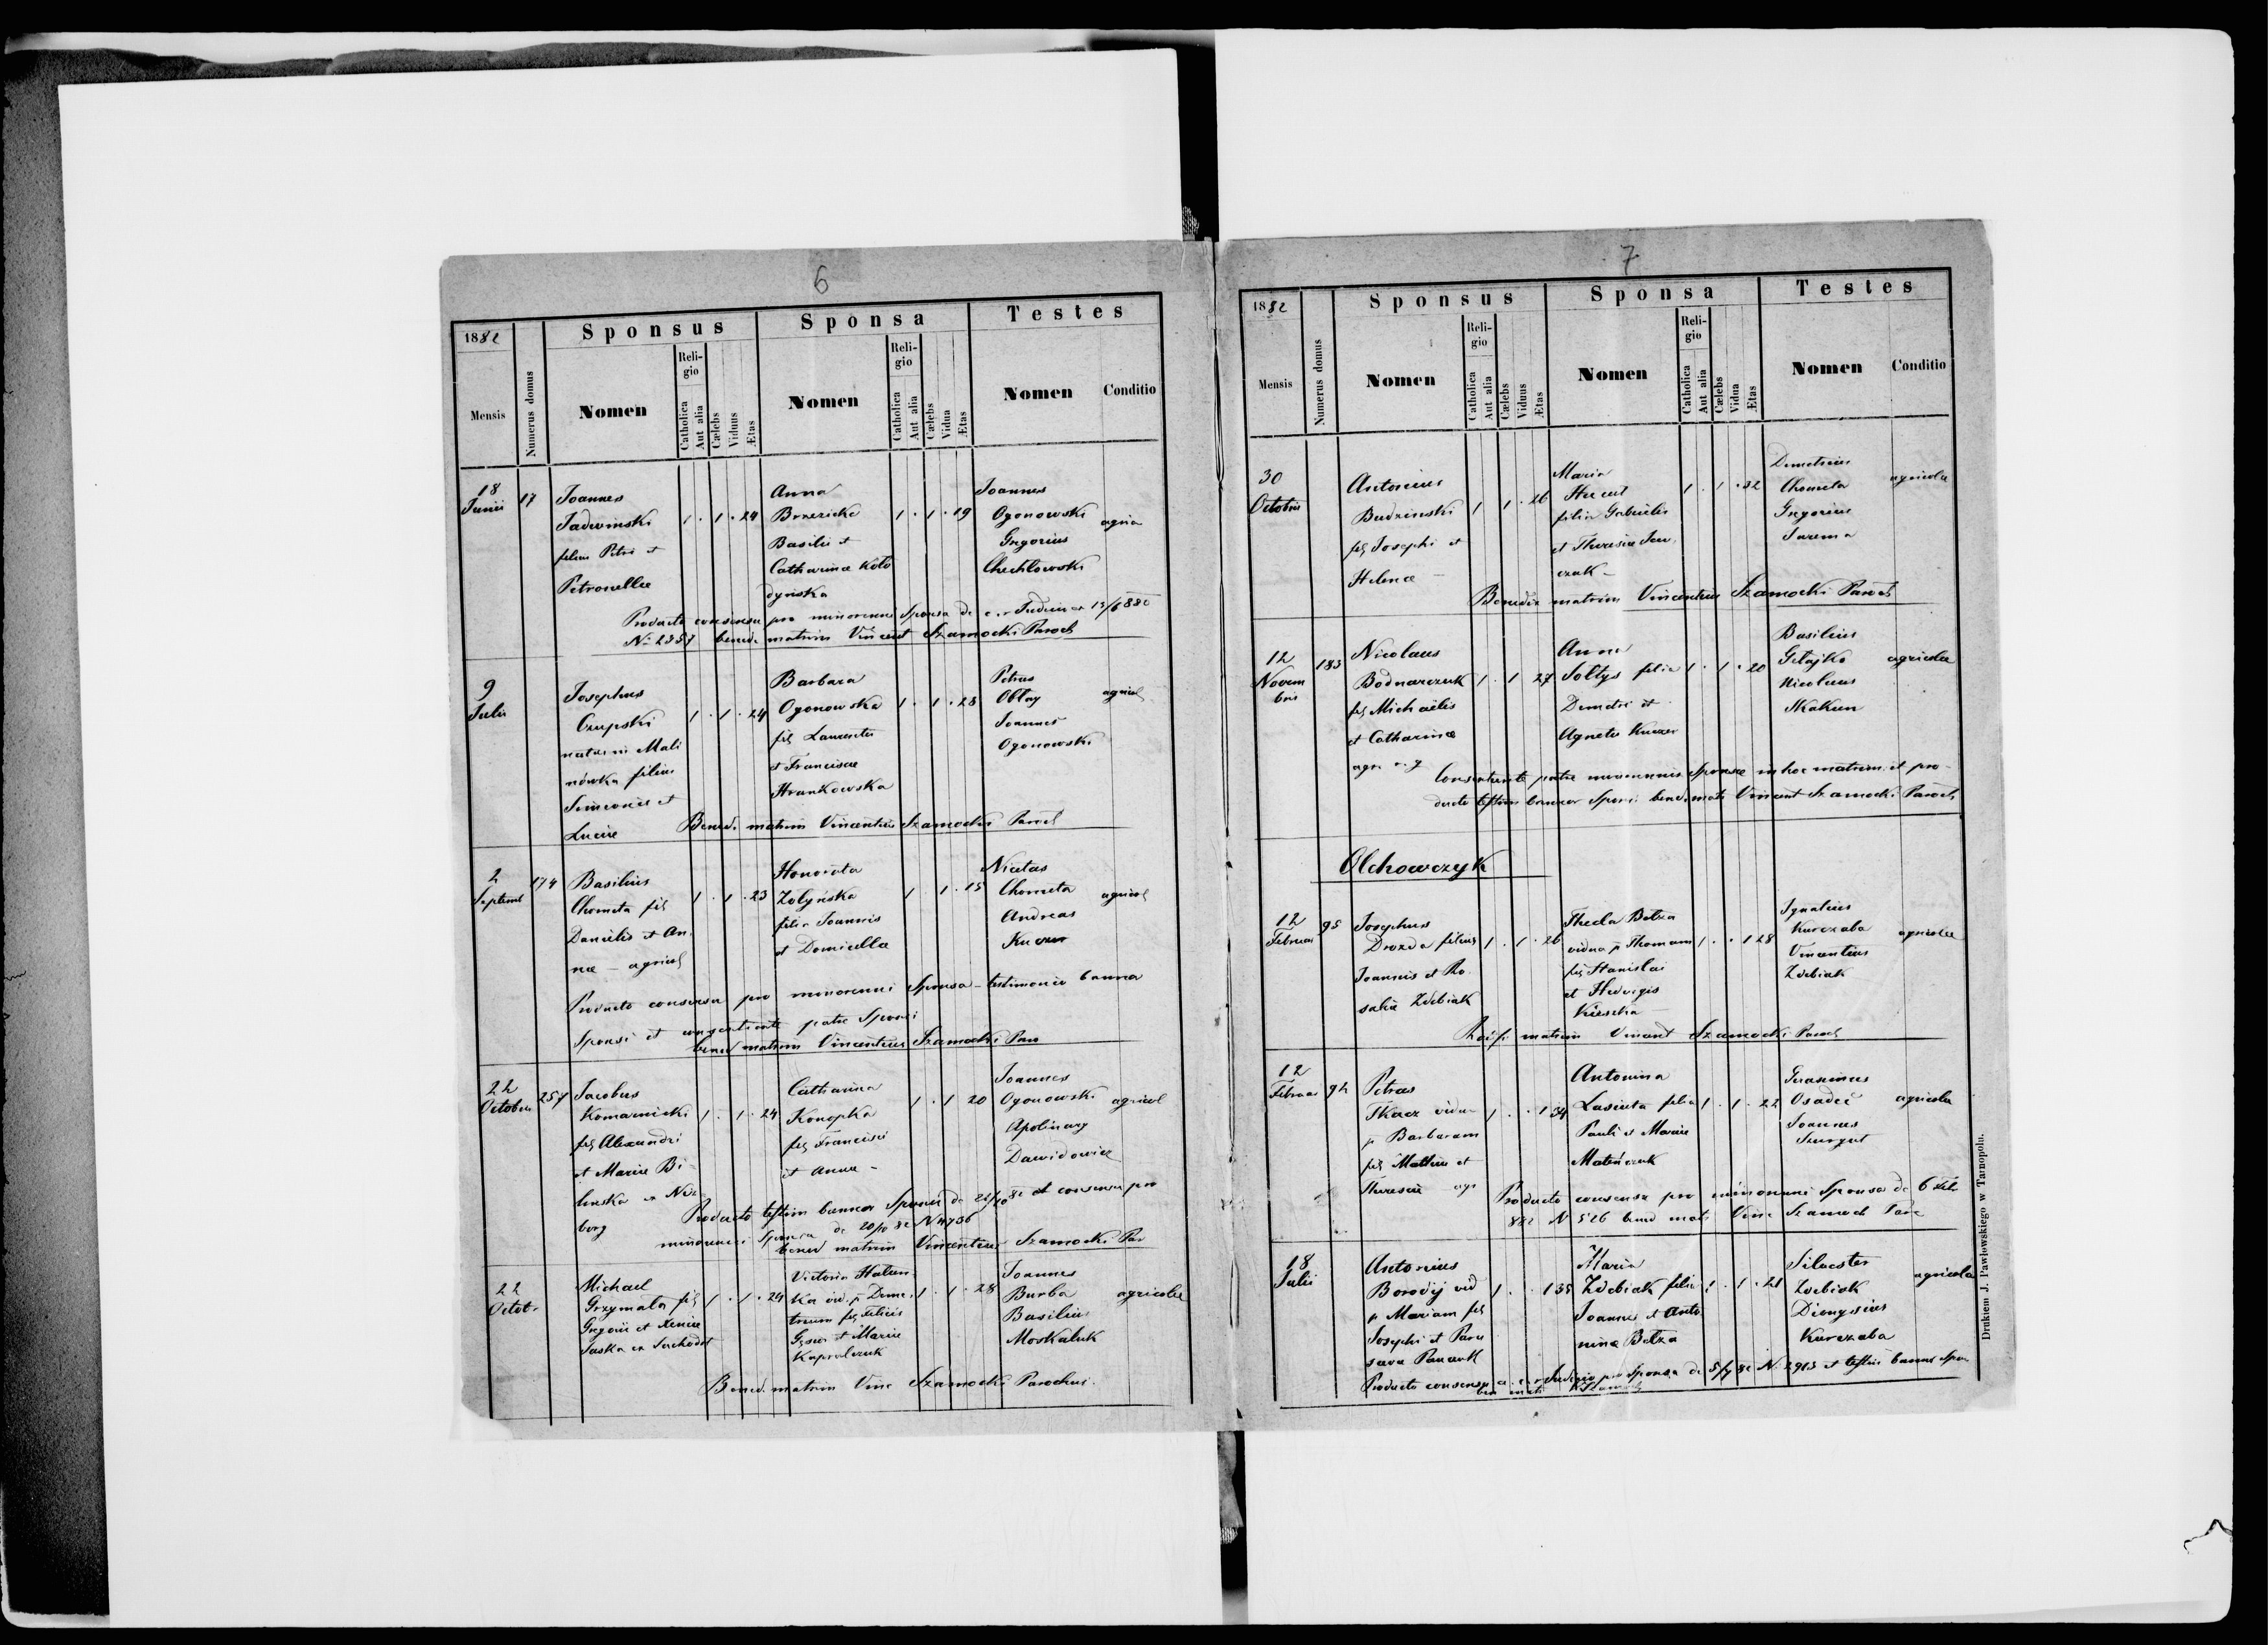 6
1882
Sponsus
Sponsa
Testes
Mensis
Numerus domus
Nomen
Religio
Catholica
Aut alia
Cælebs
Viduus
Ætas
Nomen
Religio
Catholica
Aut alia
Cælebs
Vidua
Ætas
Nomen
Conditio
18
Junii
17
Joannes
Jadwinski
filius Petri et
Petronellae
1 . 1 . 24
Anna
Brzezicka
Basilii et
Catharinae Koło
dyńska
1 . 1 . 19
Joannes
Ogonowski
Gregorius
Chechłowski
Producto consensu pro minorenni Sponsa de 13/6 880
N 2357 bened. matrim Vincent Szamocki Paroch
9
Julii
Josephus
Czupski
Mali
nówka filius
Simeonis et
Luciae
1 . 1 . 24
Barbara
Ogonowska
fil Laurentii
et Franciscae
Hrankowska
1 . 1 . 28
Petrus
Obłay
Joannes
Ogonowski
agricol
Bened. matrim Vincentius Szamocki Paroch
2
Septemb
174
Basilius
Chometa fil
Danielis et An
nae - agricol
1 . 1 . 23
Honorata
Zołyńska
filia Joannis
et Domicella
1 . 1 . 15
Nicetas
Chometa
Andreas
Kuczer
agricol
Producto consensu pro minorenni Sponsa - testimonio banna
Sponsi et consentiente patre Sponsi
bened matrim Vincentius Szamocki Paro
22
Octobris
257
Jacobus
Komarnicki
fil Alexandri
et Mariae Bi-
linska ex Niż
borg
1 . 1 . 24
Catharina
Konopka
fil Francisci
et Annae -
1 . 1 20
Joannes
Ogonowski
Apolinary
Dawidowicz
agricol
Producto testim bannor Sponsi de 22/10 82 et consensu pro
minorenni Sponsa de 20/10 82 N 4736
bened matrim Vincentius Szamocki Par
22
Octobr
Michael
Grzymała fil
Gregorii et Xeniae
Saska ex Suchodoł
1 . 1 . 24
Victoria Halun
ka vid. p. Deme
trium fil Felicis
et Mariae
Kapralczuk
1 . 1 . 28
Joannes
Burba
Basilius
Moskaluk
agricolae
Bened. matrim Vinc Szamocki Parochus.
7
1882
Sponsus
Sponsa
Testes
Mensis
Numerus domus
Nomen
Religio
Catholica
Aut alia
Cælebs
Viduus
Ætas
Nomen
Religio
Catholica
Aut alia
Cælebs
Vidua
Ætas
Nomen
Conditio
30
Octobris
Antonius
Budzinski
fil Josephi et
Helenae -
1 1 . 26
Maria
filia Gabrielis
et Theresiae
czuk -
1 . 1 . 32
Demetrius
Chometa
Gregorius
Jarema
agricolae
Benedix matrim Vincentius Szamocki Paroch
12
Novem
bris
183
Nicolaus
Bodnarczuk
fil Michaelis
et Catharinae
1 . 1 27
Anna
Sołtys filia
Demetri et
Agnetis Kuczer
1 . 1 . 20
Basilius
Gełajko
Nicolaus
Skakun
agricolae
Consentiente patre minorennis Sponsae in hoc matrim. et pro-
ducto testim bannor Sponsi bened. matr Vincent Szamocki Paroch
Olchowczyk
12
Februar
95
Josephus
Drozda filius
Joannis et Ro
saliae Zdebiak
1 . 1 . 26
Thecla Bełza
vidua p Thomam
fil Stanislai
et Hedvigis
Kieszka
1 . . 1 28
Ignatius
Kurczaba
Vincentius
Zdebiak
agricolae
matrim Vincent Szamocki Paroch
12
Februar
92
Petrus
Tkacz vidu
p Barbaram
fil Matthiae et
Theresiae agr
1 . . 1 34
Antonina
Lasiuta filia
Pauli et Mariae
Mateńczuk
1 . 1 . 22
Gerasimus
Osadec
Joannes
Szurgut
agricolae
Producto consensu pro minorenni Sponsa de 6
882 N 526 bened matr Vinc Szamock Paro
18
Julii
Antonius
Borodij vid
p Mariam fil
Josephi et Para
scevae Panczuk
1 . . 1 35
Maria
Zdebiak filia
Joannis et Anto
ninae Bełza
1 . 1 . 21
Silvester
Zdebiak
Dionysius
Kurczaba
agricolae
Producto consensu a Judicio pro Sponsa de 5/7 82 N 2913 et testim bannor Spon
Drukiem J. Pawłowskiego w Tarnopolu.